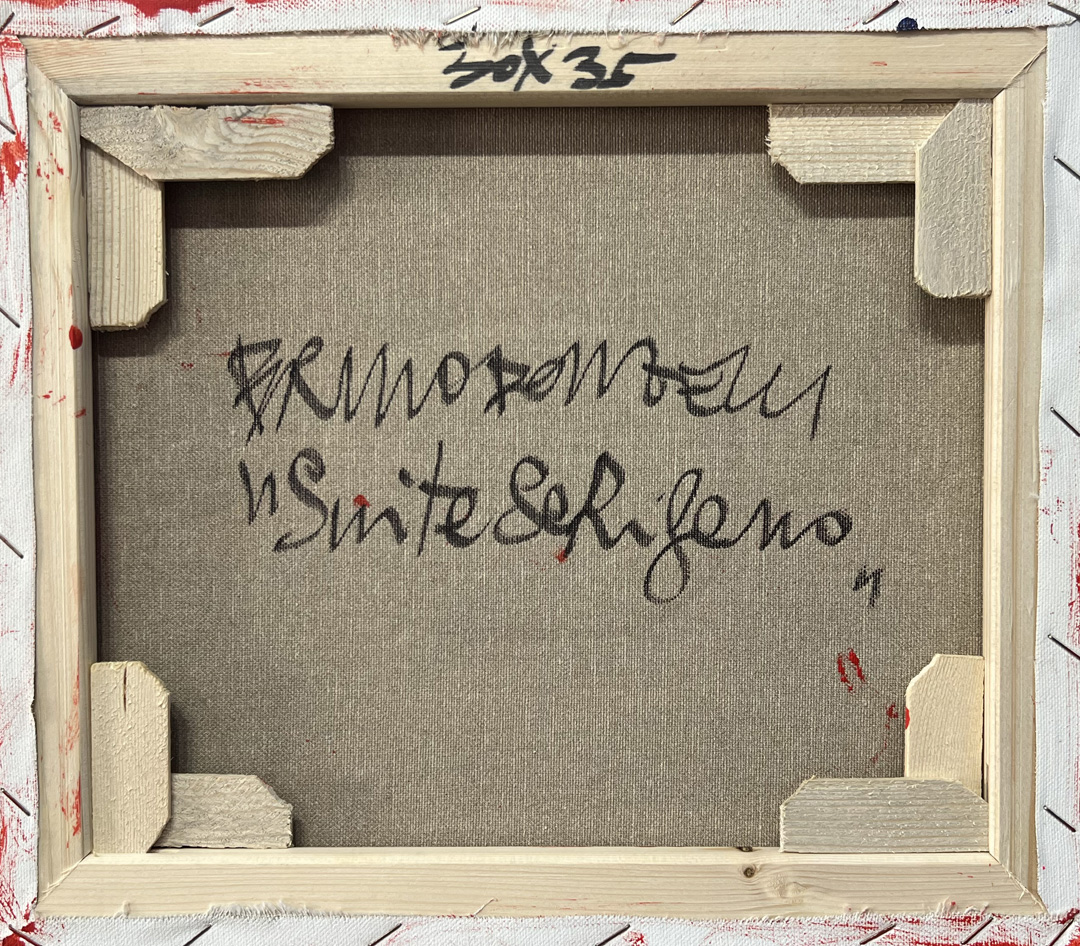 30x35
BRUNO DONZELLI
"Suite Serigeno"